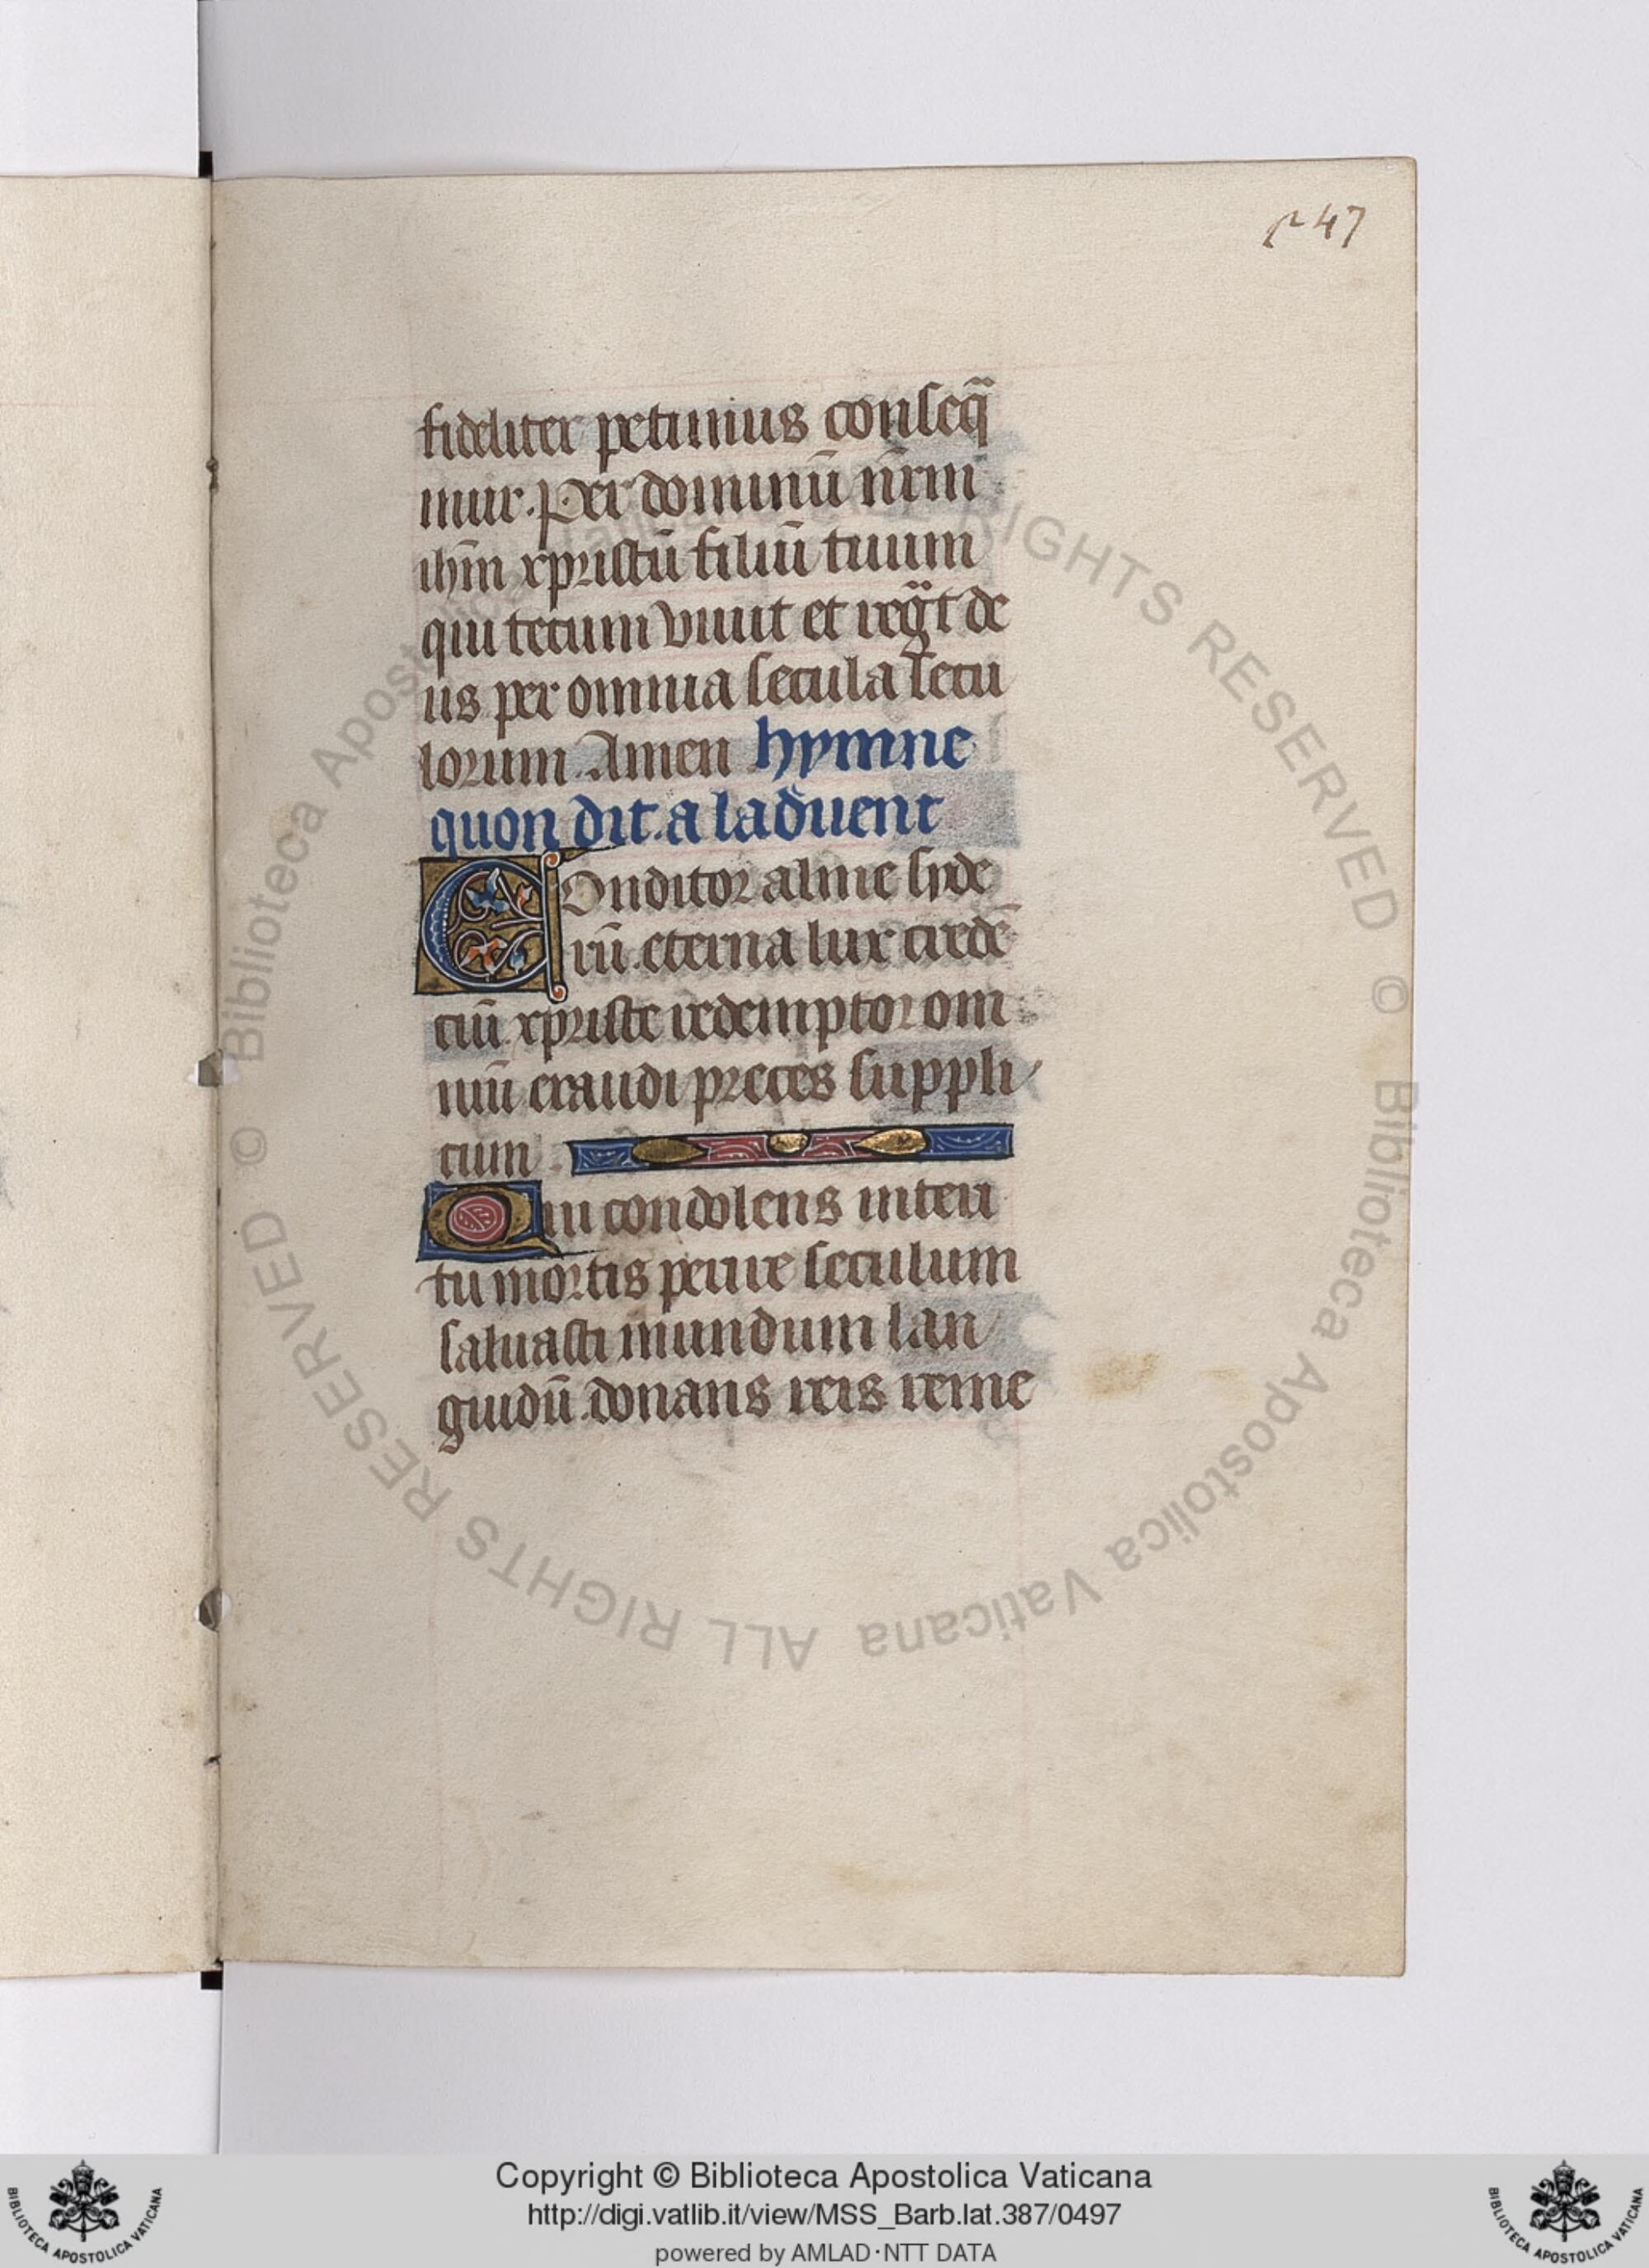 247
fideliter petimus conseq̃
mur. Per dominū nr̄m
ih̄m xpristū filiū tuum
qui tecum viuit et regᷓt de
us per omnia secula secu
lorum. Amen hymne
quon dit. a laduent
Conditor alme syde
rū. eterna lux credē
ciū. xpriste redemptor om
niū exaudi preces suppli
cum.
Qui condolens interi
tu mortis perire seculum
saluasti mundum lan
guidū. donans reis reme
© Biblioteca Apostolica Vaticana ALL RIGHTS RESERVED © Biblioteca Apostolica Vaticana ALL RIGHTS RESERVED
Copyright © Biblioteca Apostolica Vaticana
http://digi.vatlib.it/view/MSS_Barb.lat.387/0497
powered by AMLAD·NTT DATA
BIBLIOTECA APOSTOLICA VATICANA
BIBLIOTECA APOSTOLICA VATICANA